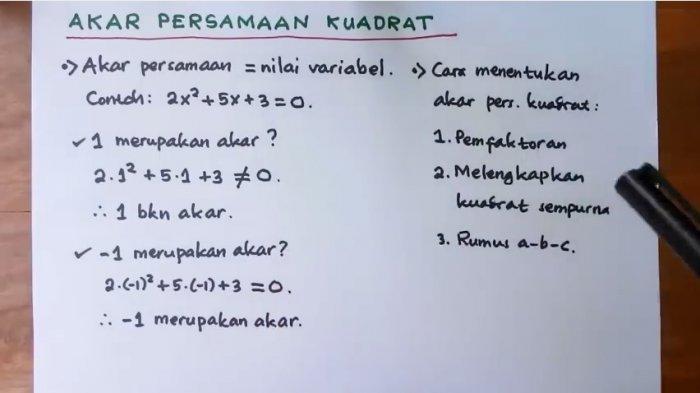 AKAR PERSAMAAN KUADRAT
•> Akar persamaan = nilai variabel.
Contoh: 2x² + 5x + 3 = 0.
✓ 1 merupakan akar?
2.1² + 5.1 + 3 ≠ 0.
∴ 1 bkn akar.
✓ -1 merupakan akar?
2.(-1)² + 5.(-1) + 3 = 0.
∴ -1 merupakan akar.
•> Cara menentukan
akar pers. kuadrat:
1. Pemfaktoran
2. Melengkapkan
kuadrat sempurna
3. Rumus a-b-c.